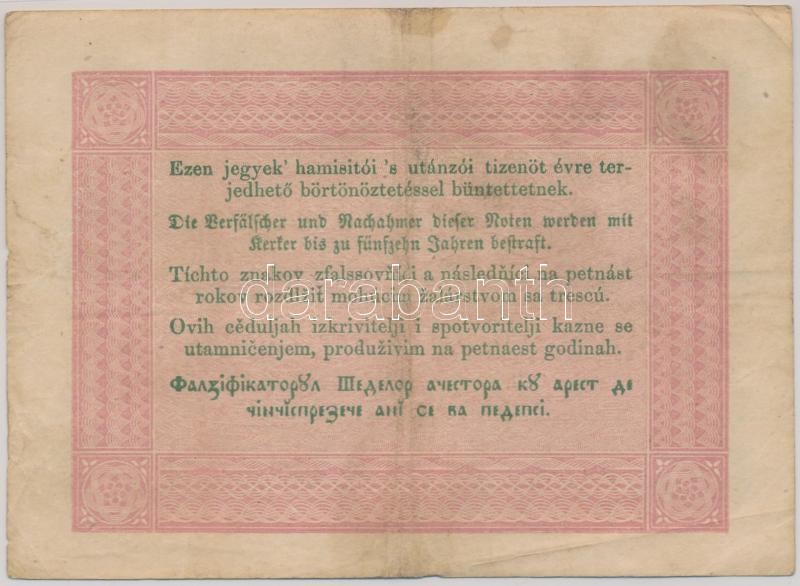 Ezen jegyek' hamisitói 's utánzói tizenöt évre ter-
jedhető börtönöztetéssel büntettetnek.
Die Verfälscher und Nachahmer dieser Noten werden mit
Kerker bis zu fünfzehn Jahren bestraft.
Tíchto znakov zfalssovňíci a následňíci na petnást
rokov rozdlžiť mohúcím žalárstvom sa trescú.
darabanth
Ovih cěduljah izkrivitelji i spotvoritelji kazne se
utamničenjem, produživim na petnaest godinah.
Фалꙃіфікаторꙋл Шеделор ачестора кꙋ арест де
чінчіспрезече анĭ се ва педепсі.